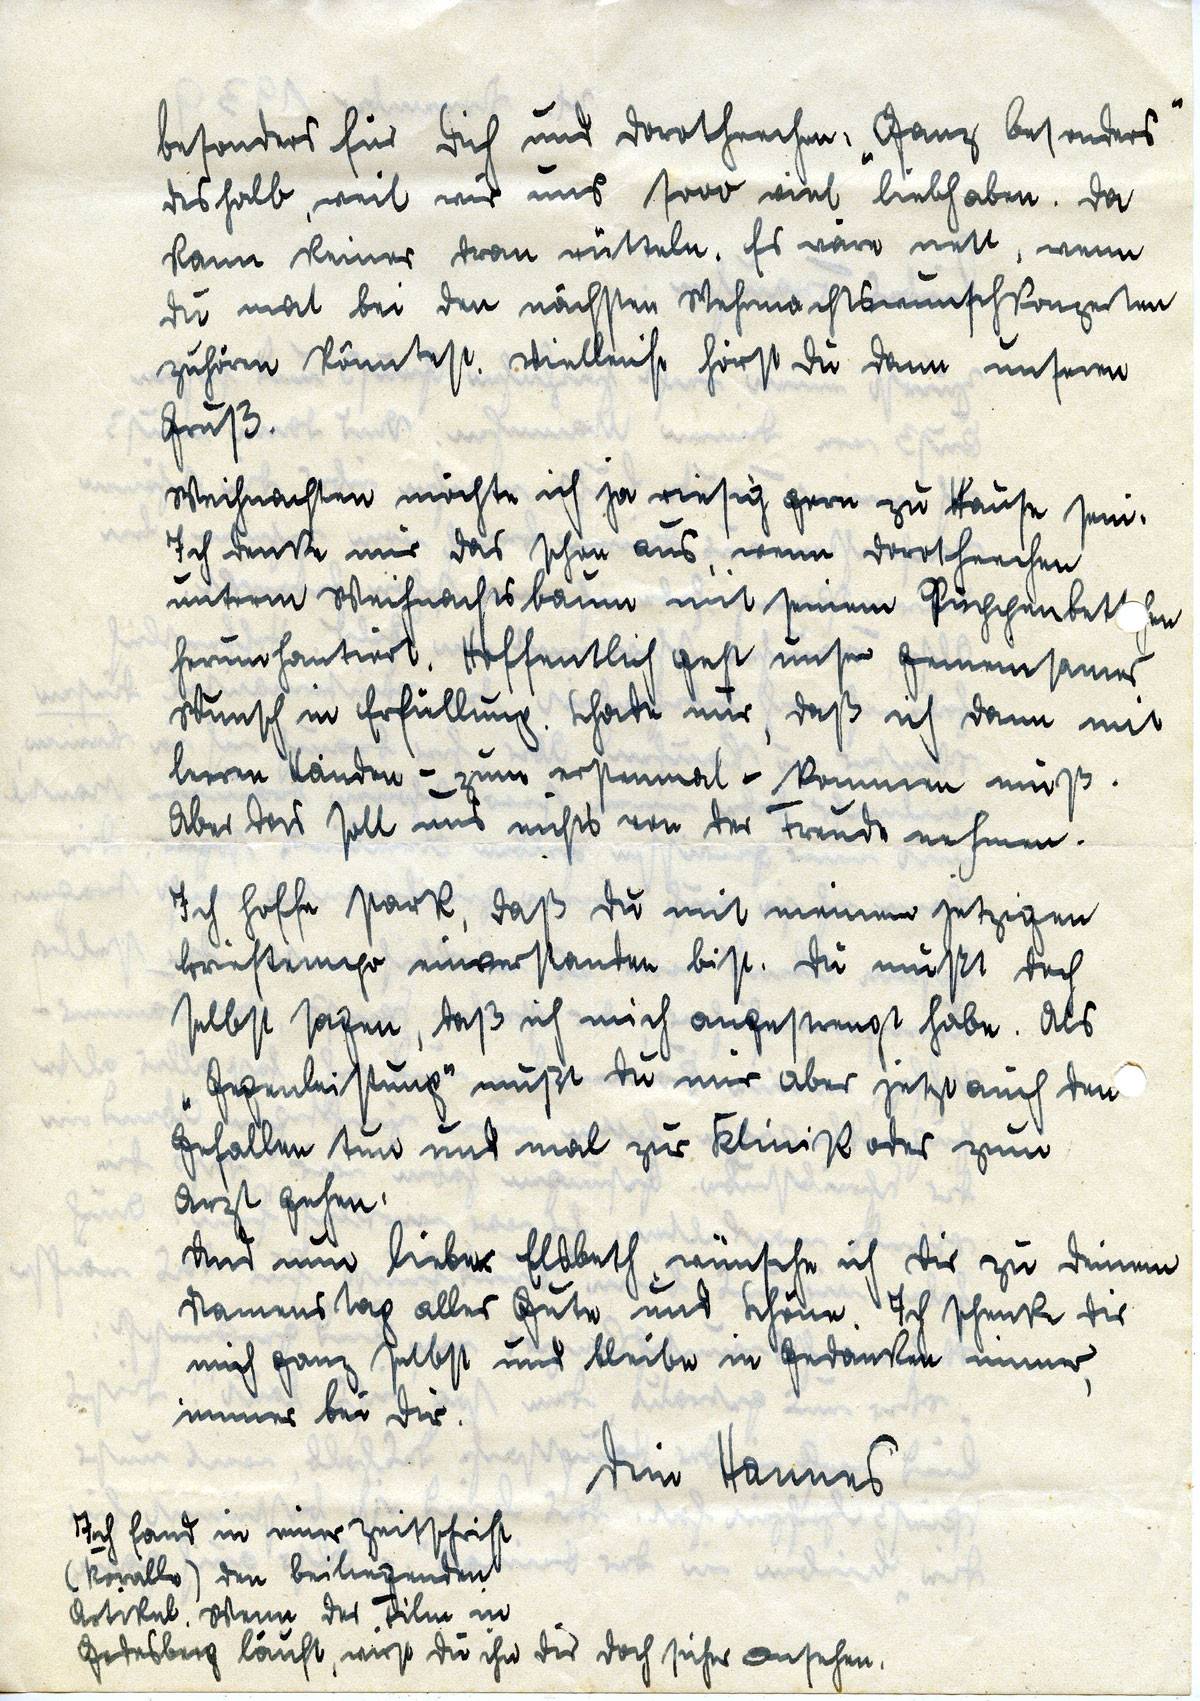 besonders für Dich und Dorotheechen. „Ganz besonders"
deshalb, weil wir uns sooo viel liebhaben. Da
kann keiner dran rütteln. Es wäre nett, wenn
Du mal bei den nächsten Wehrmachtswunschkonzerten
zuhören könntest. Vielleicht hörst Du dann unseren
Gruß.
Weihnachten möchte ich ja riesig gern zu Hause sein.
Ich denke mir das schon aus, wenn Dorotheechen
unterm Weihnachtsbaum mit seinem Püppchenbettchen
herumhantiert. Hoffentlich geht unser gemeinsamer
Wunsch in Erfüllung. Schade nur, daß ich dann mit
leeren Händen - zum erstenmal - kommen muß.
Aber das soll uns nichts von der Freude nehmen.
Ich hoffe stark, daß Du mit meinem jetzigen
Brieftempo einverstanden bist. Du mußt doch
selbst sagen, daß ich mich angestrengt habe. Als
„Gegenleistung" mußt Du mir aber jetzt auch den
Gefallen tun und mal zur Klinik oder zum
Arzt gehen.
Und nun liebe Elsbeth, wünsche ich Dir zu Deinem
Namenstag alles Gute und Schöne. Ich schenke Dir
mich ganz selbst und bleibe in Gedanken immer,
immer bei Dir.
Dein Hannes
Ich fand in einer Zeitschrift
(Koralle) den beiliegenden
Artikel. Wenn der Film in
Godesberg läuft, wirst Du ihn Dir doch sicher ansehen.